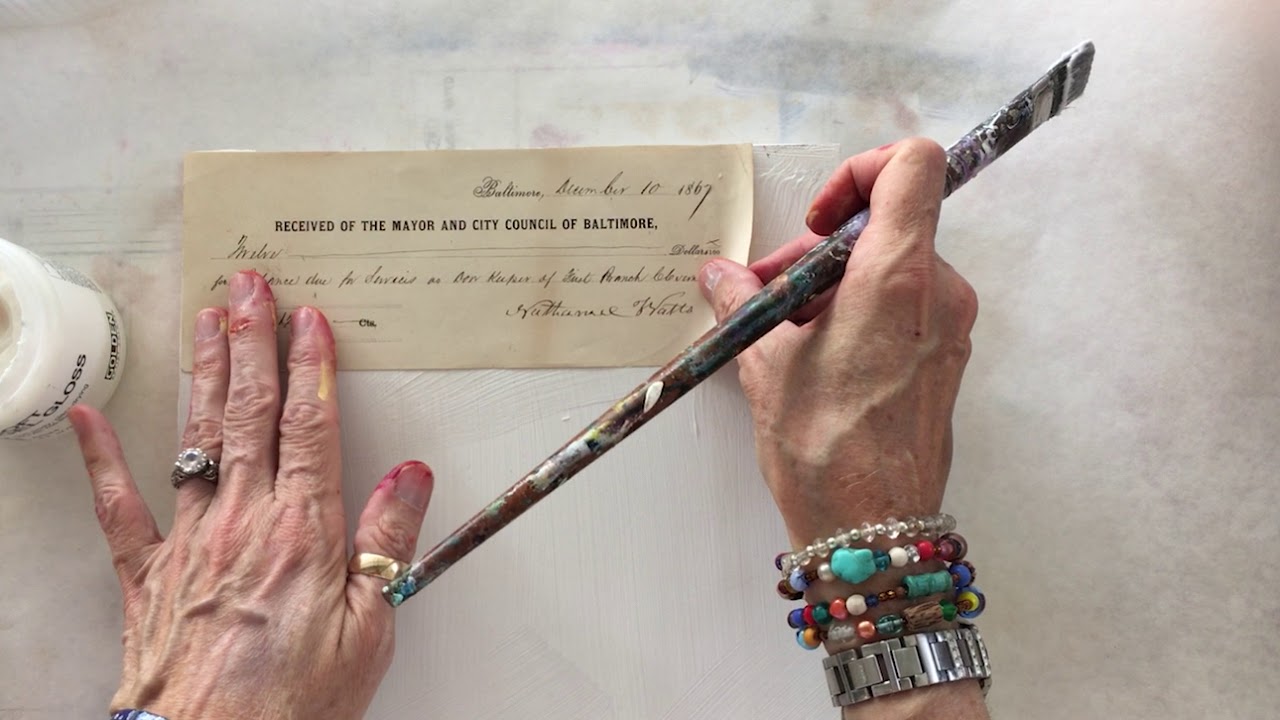 Baltimore, December 10 1867
RECEIVED OF THE MAYOR AND CITY COUNCIL OF BALTIMORE,
Twelve Dollars
for due for Services as Door Keeper of First Branch
Nathaniel Watts
Cts.
GLOSS
GOLDEN